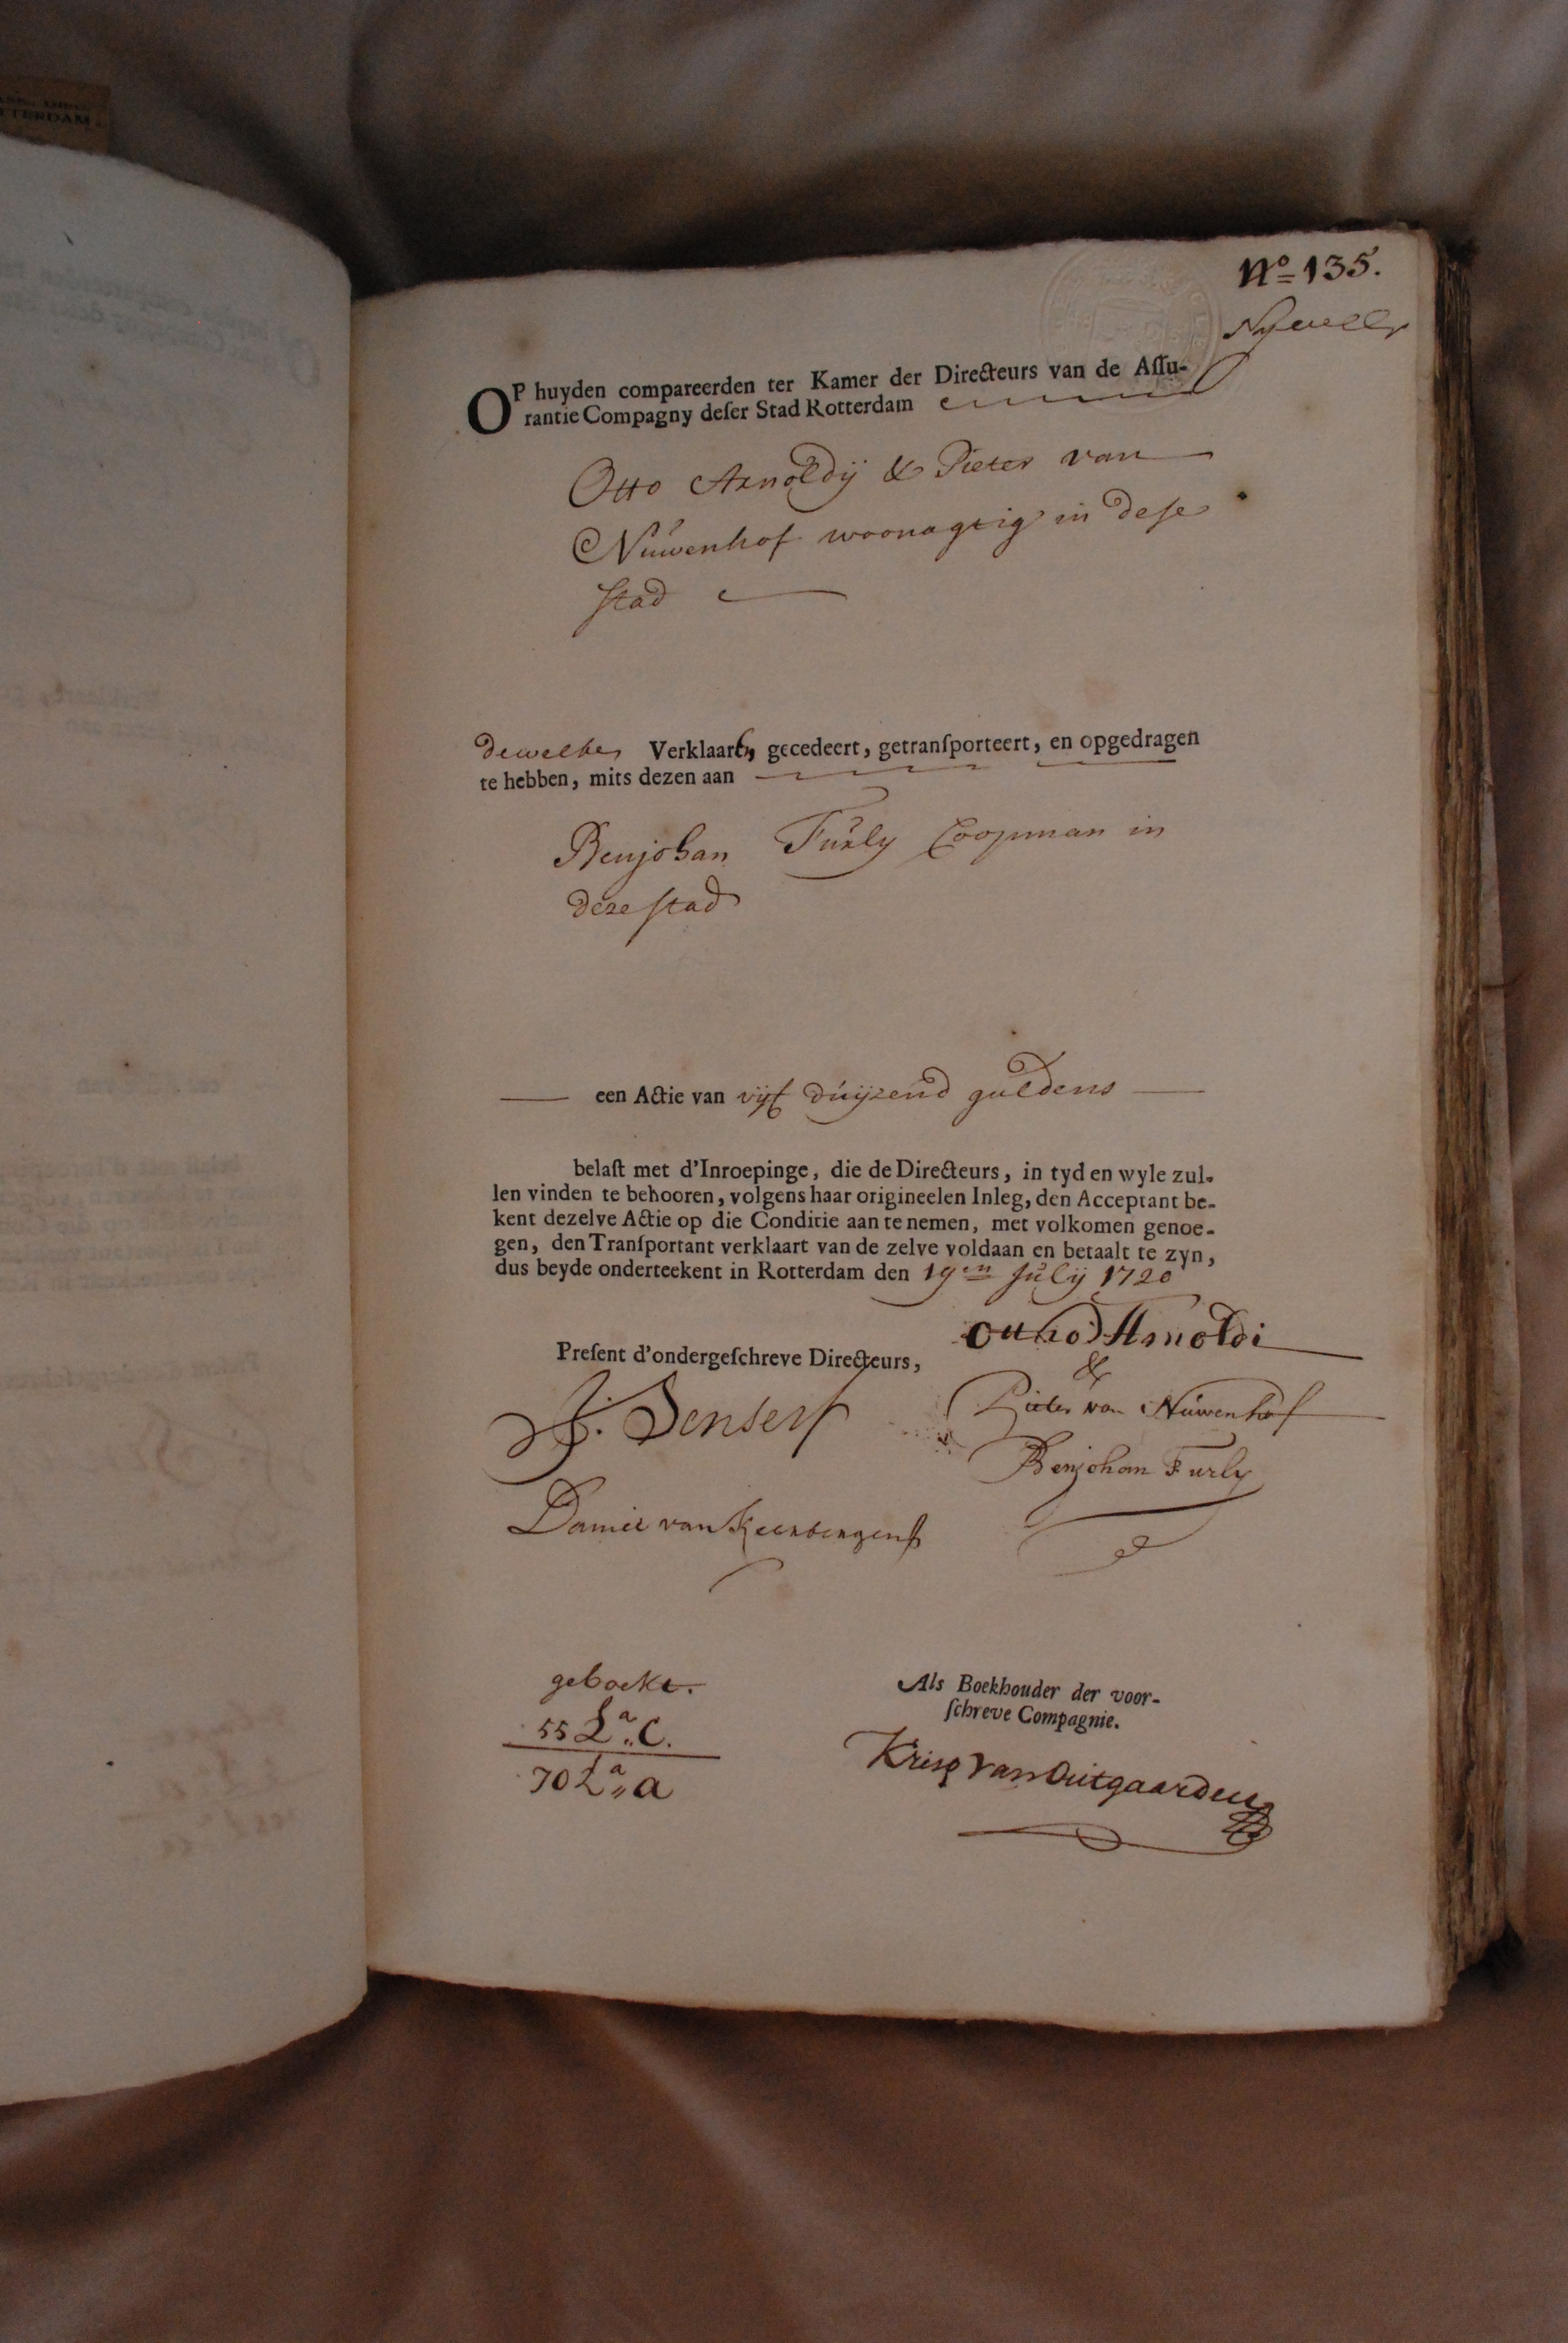 TERDAM.
No 135.
OP huyden compareerden ter Kamer der Directeurs van de Aſſu-
rantie Compagny deſer Stad Rotterdam
Otto Arnoldij & Pieter van
Núwenhof woonagtig in deſe
ſtad
dewelke Verklaaren, gecedeert, getranſporteert, en opgedragen
te hebben, mits dezen aan
Benjohan Fúrly Coopman in
deze ſtad
een Actie van vijf dúijzend guldens
belaſt met d'Inroepinge, die de Directeurs, in tyd en wyle zul-
len vinden te behooren, volgens haar origineelen Inleg, den Acceptant be-
kent dezelve Actie op die Conditie aan te nemen, met volkomen genoe-
gen, den Tranſportant verklaart van de zelve voldaan en betaalt te zyn,
dus beyde onderteekent in Rotterdam den 19en Júlij 1720
Otto Arnoldi
&
Preſent d'ondergeſchreve Directeurs,
Pieter van Núwenhof
J. Senserf
Benjohan Furly
Daniel van
geboekt.
55 La C.
70 La a
Als Boekhouder der voor-
ſchreve Compagnie.
Krisp van Outgaarden